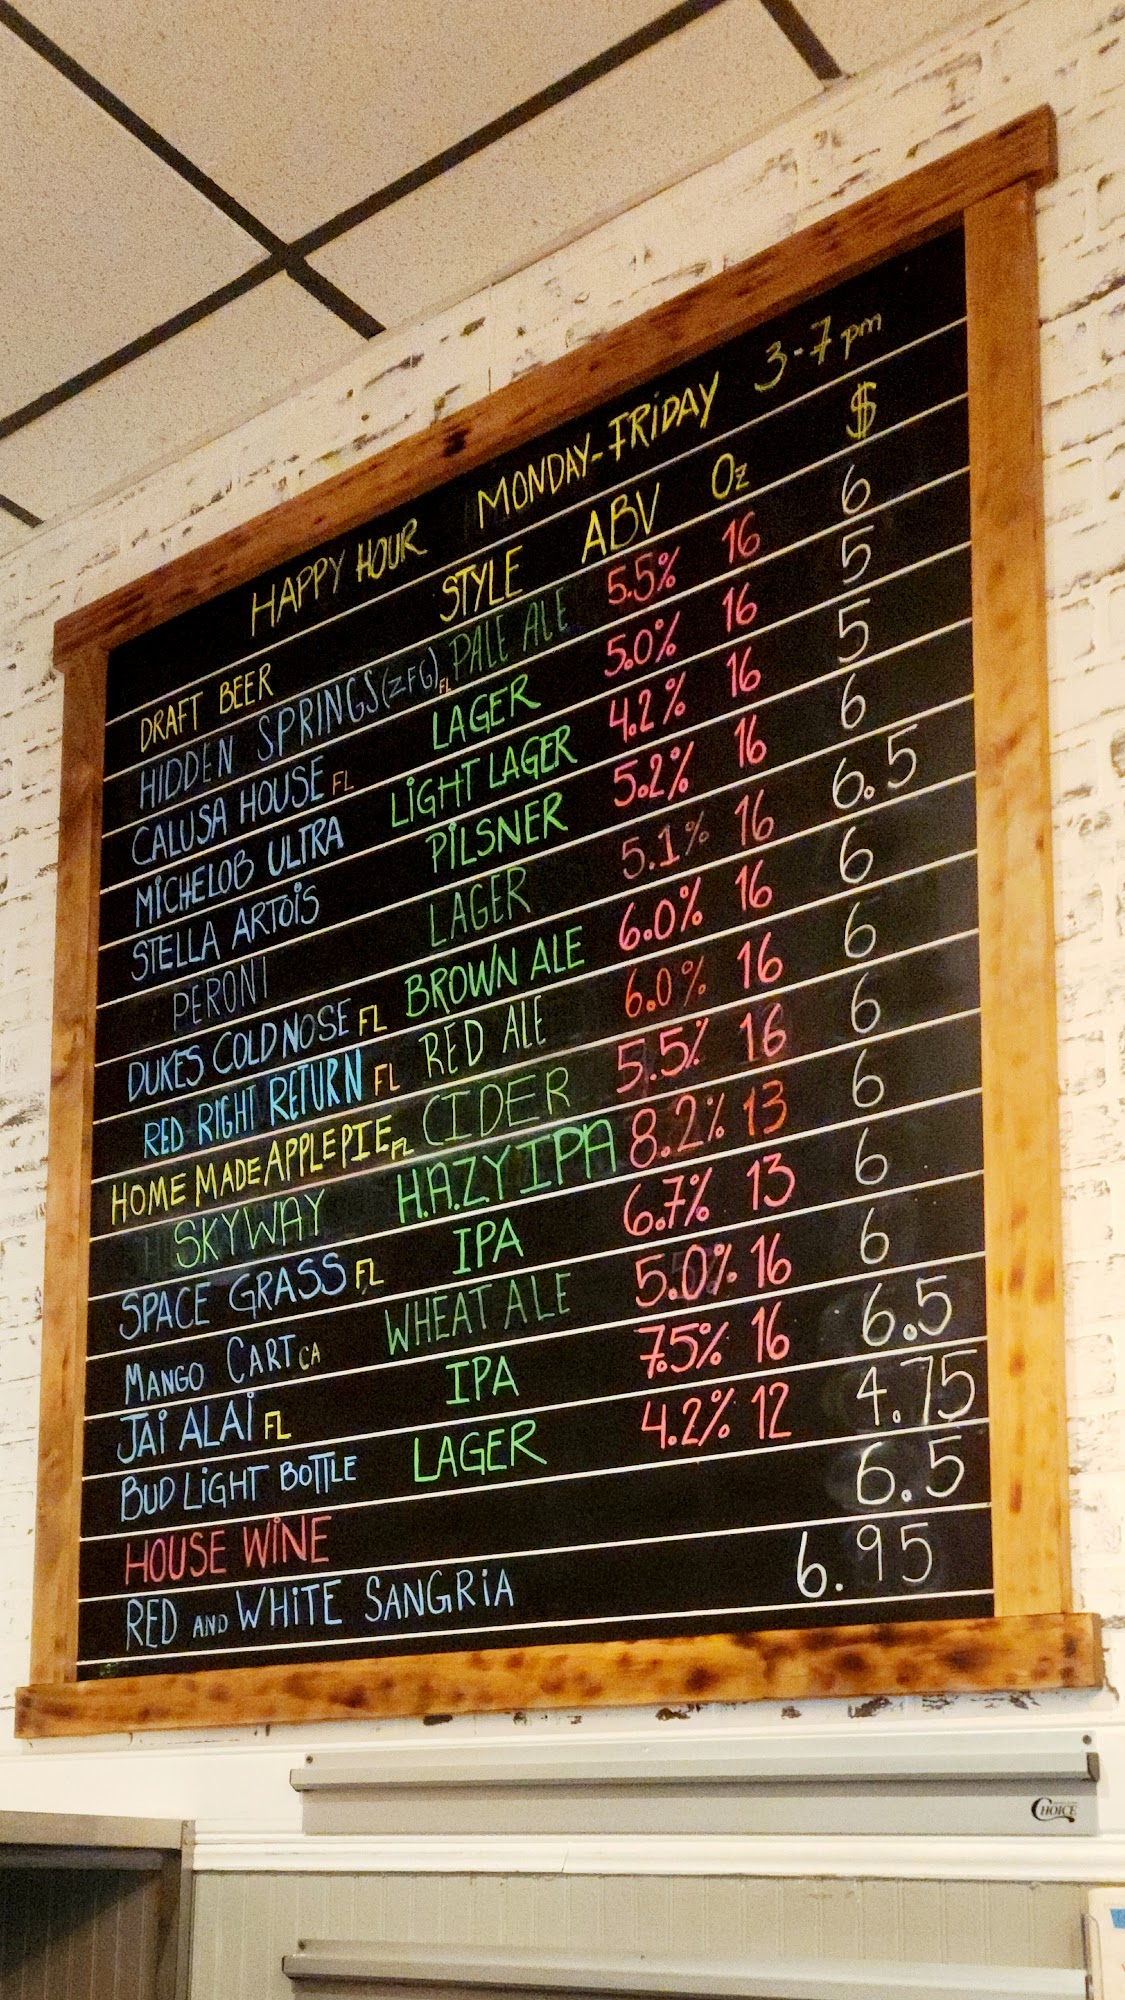 HAPPY HOUR MONDAY-FRIDAY 3-7 pm
DRAFT BEER STYLE ABV Oz $
HIDDEN SPRINGS (ZFG) FL PALE ALE 5.5% 16 6
CALUSA HOUSE FL LAGER 5.0% 16 5
MICHELOB ULTRA LIGHT LAGER 4.2% 16 5
STELLA ARTOIS PILSNER 5.2% 16 6
PERONI LAGER 5.1% 16 6.5
DUKES COLD NOSE FL BROWN ALE 6.0% 16 6
RED RIGHT RETURN FL RED ALE 6.0% 16 6
HOME MADE APPLE PIE FL CIDER 5.5% 16 6
SKYWAY H.A.ZY IPA 8.2% 13 6
SPACE GRASS FL IPA 6.7% 13 6
MANGO CART CA WHEAT ALE 5.0% 16 6
JAI ALAI FL IPA 7.5% 16 6.5
BUD LIGHT BOTTLE LAGER 4.2% 12 4.75
HOUSE WINE 6.5
RED AND WHITE SANGRIA 6.95
CHOICE